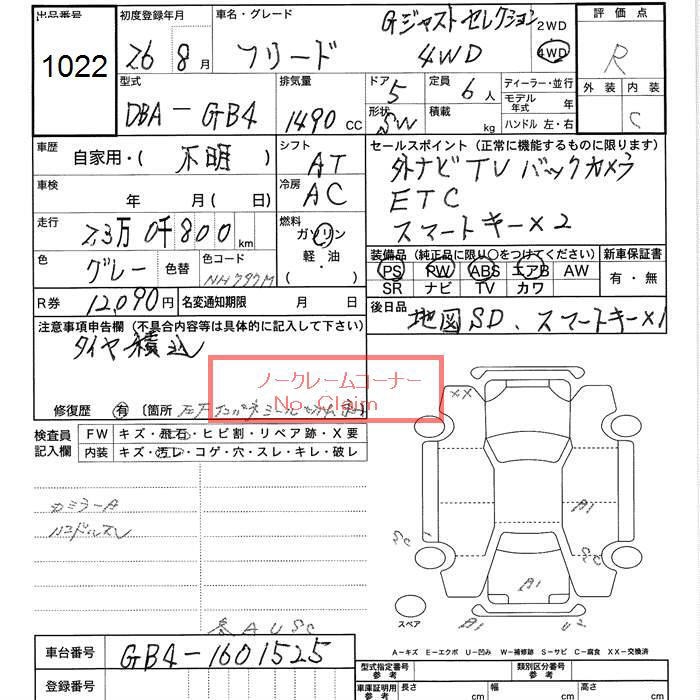 出品番号 初度登録年月 車名・グレード Gジャスト セレクション 2WD 評価点
1022 26 8月 フリード 4WD 4WD R
型式 排気量 ドア 定員 ディーラー・並行 外装 内装
DBA-GB4 1490 CC 5 6人 モデル年式 年
形状 SW 積載 kg ハンドル 左・右 C
車歴 自家用・( 不明 ) シフト AT セールスポイント (正常に機能するものに限ります)
車検 年 月(日) 冷房 AC 外ナビ TV バックカメラ
ETC
走行 2.3万 0千800km 燃料 ガソリン スマートキー×2
軽・油
色 グレー 色替 色コード NH797M
装備品 (純正品に限り○をつけてください) 新車保証書
PS PW ABS エアB AW 有・無
SR ナビ TV カワ
R券 12,090円 名変通知期限 月 日
後日品 地図SD、スマートキー×1
注意事項申告欄 (不具合内容等は具体的に記入して下さい)
タイヤ積込
ノークレームコーナー
No Claim
修復歴 有 〔箇所
検査員記入欄 FW キズ・飛石・ヒビ割・リペア跡・X要
内装 キズ・汚レ・コゲ・穴・スレ・キレ・破レ
XX
カミラーA
ハンドルスレ
A1
SC
SC
A1
スペア
B1 U2
AUSC
A-キズ E-エクボ U-凹み W-補修跡 S-サビ C-腐食 XX-交換済
車台番号 GB4-1601525
型式指定番号 参考 類別区分番号 参考
登録番号 車庫証明用 参考 長さ cm 幅 cm 高さ cm